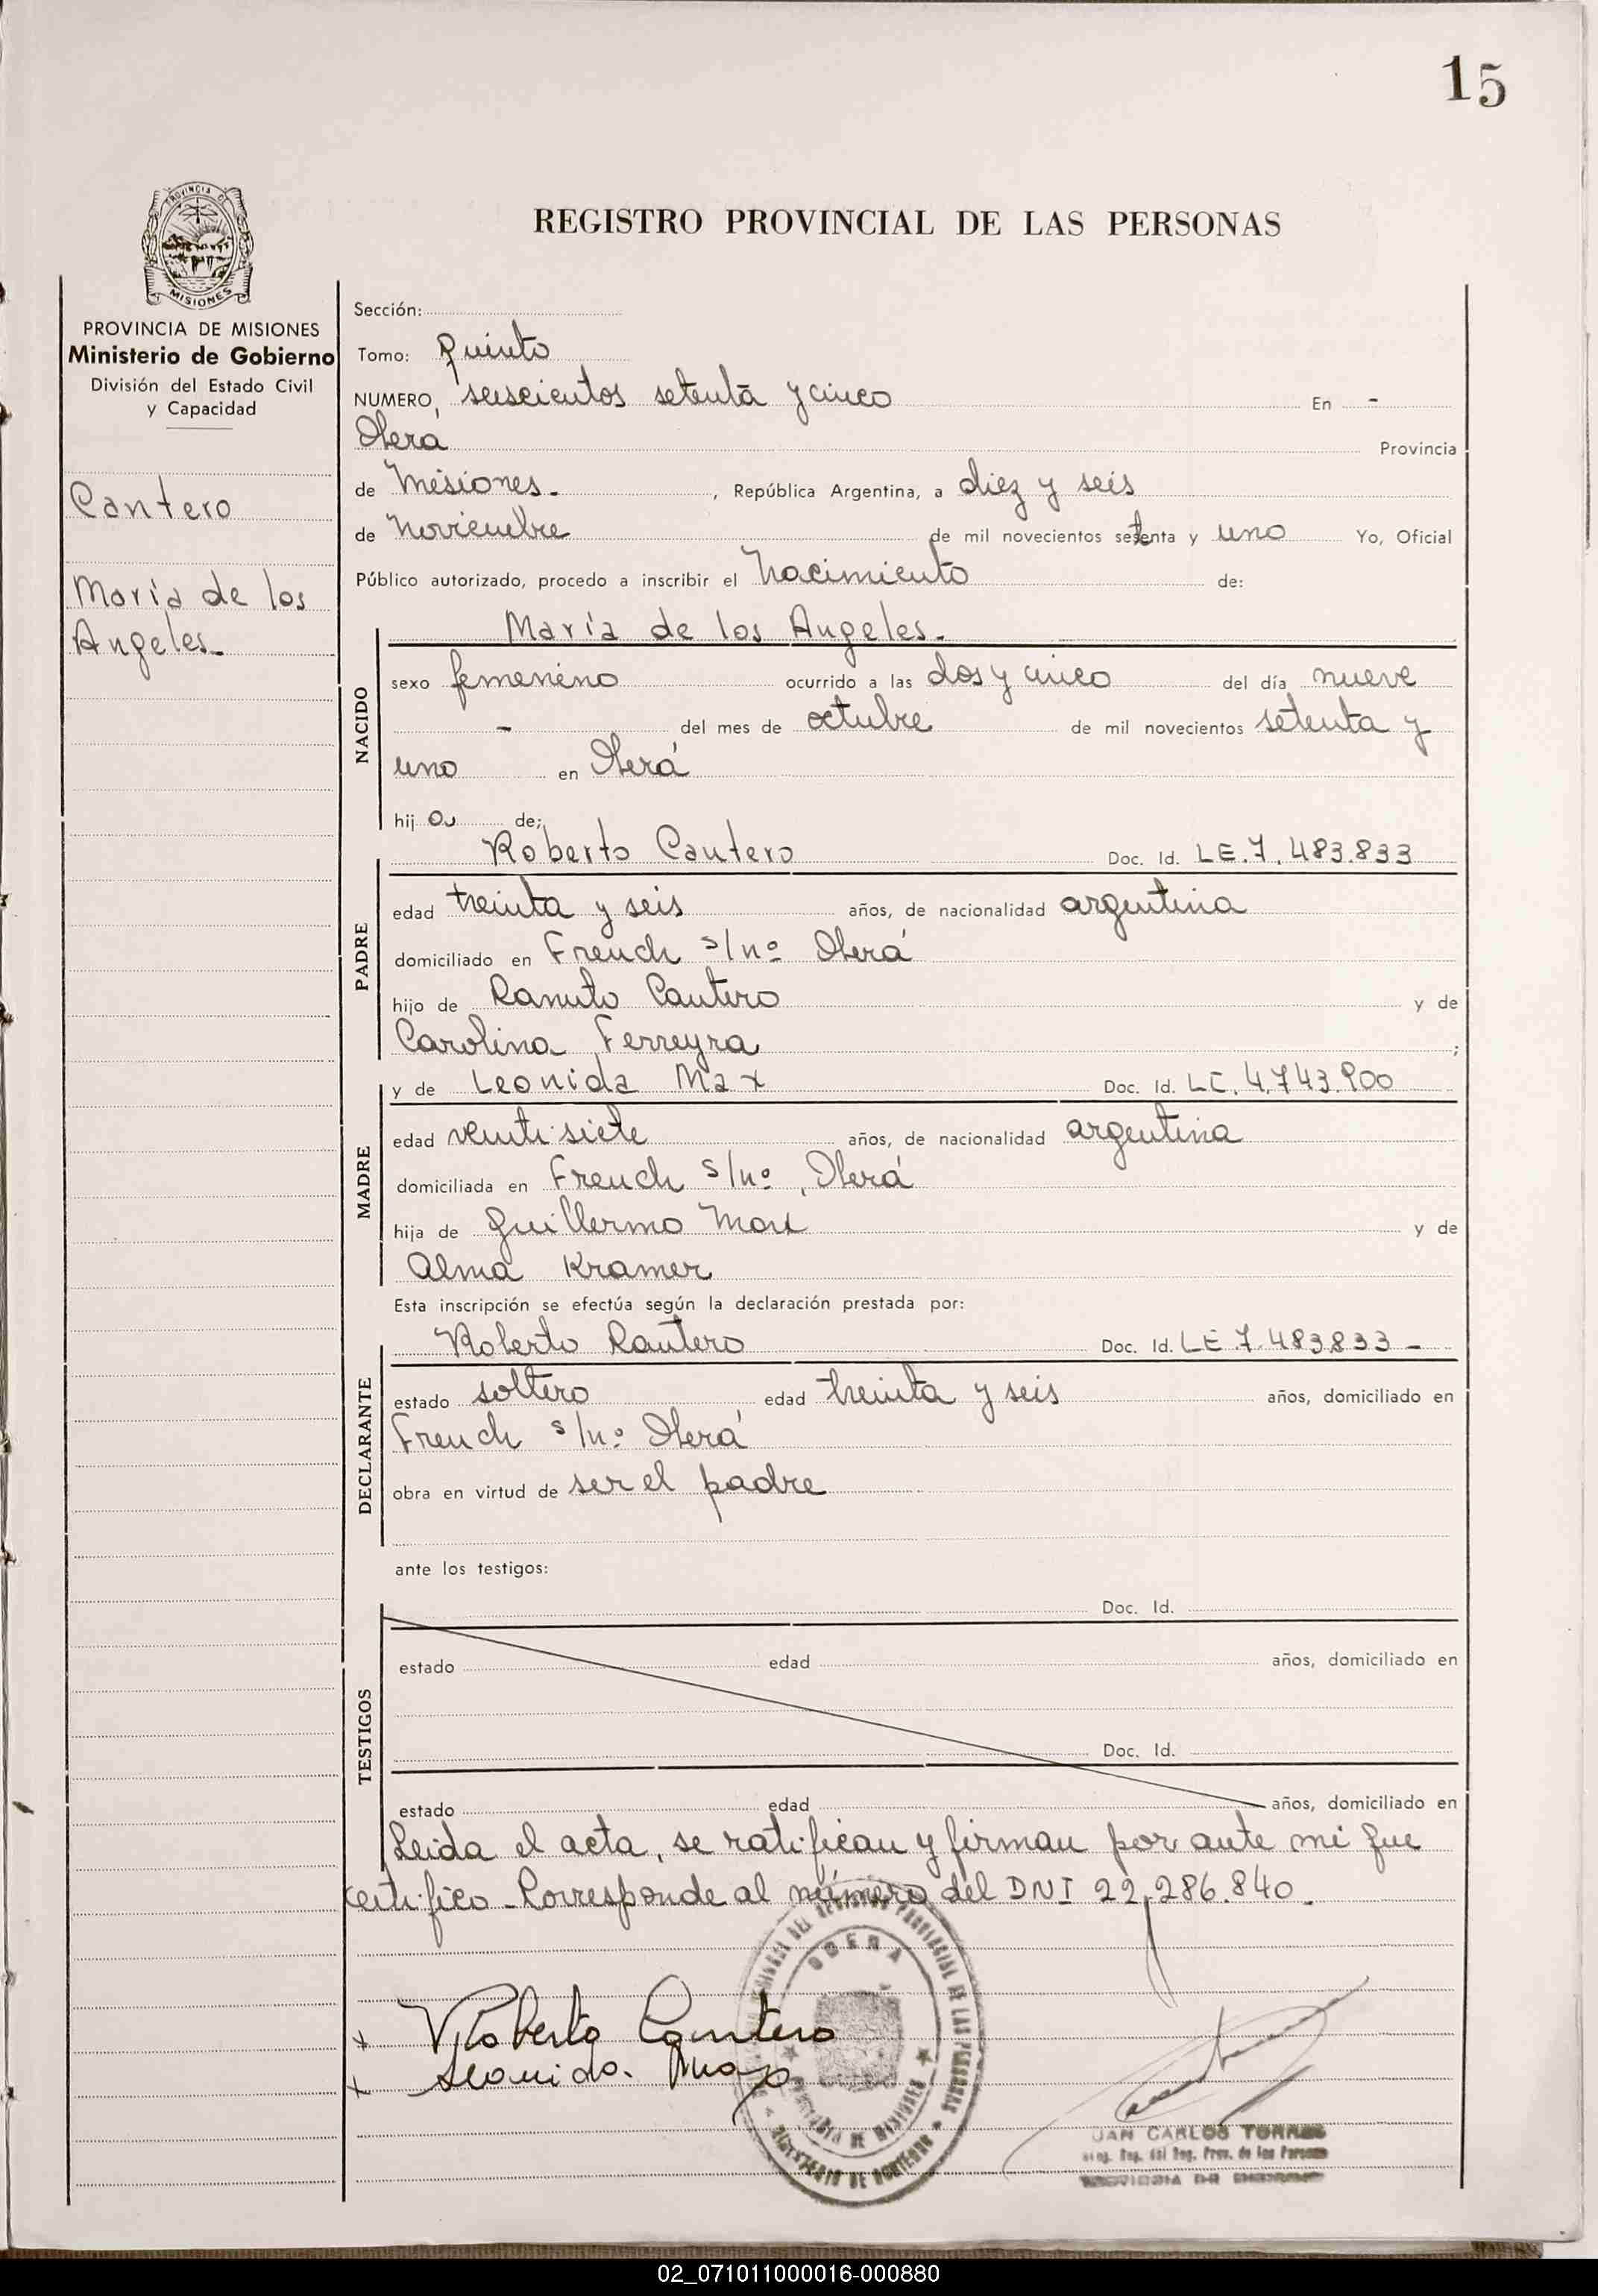 15
PROVINCIA DE
MISIONES
REGISTRO PROVINCIAL DE LAS PERSONAS
PROVINCIA DE MISIONES
Ministerio de Gobierno
División del Estado Civil
y Capacidad
Cantero
María de los
Angeles.
Sección:
Tomo: Quinto
NUMERO, seiscientos setenta y cinco En -
Oberá Provincia
de Misiones. , República Argentina, a diez y seis
de Noviembre de mil novecientos setenta y uno Yo, Oficial
Público autorizado, procedo a inscribir el Nacimiento de:
NACIDO
María de los Angeles.
sexo femenino ocurrido a las dos y cinco del día nueve
- del mes de octubre de mil novecientos setenta y
uno en Oberá
hija de;
PADRE
Roberto Cantero Doc. Id. LE.7.483.833
edad treinta y seis años, de nacionalidad argentina
domiciliado en French s/nº Oberá
hijo de Ranuto Cantero y de
Carolina Ferreyra ;
MADRE
y de Leonida Max Doc. Id. LC.4.743.900
edad veinti siete años, de nacionalidad argentina
domiciliada en French s/nº, Oberá
hija de Guillermo Max y de
Alma Kramer
Esta inscripción se efectúa según la declaración prestada por:
DECLARANTE
Roberto Cantero Doc. Id. LE 7.483833 -
estado soltero edad treinta y seis años, domiciliado en
French s/nº Oberá
obra en virtud de ser el padre
ante los testigos:
TESTIGOS
Doc. Id.
estado edad años, domiciliado en
Doc. Id.
estado edad años, domiciliado en
Leida el acta, se ratifican y firman por ante mi que
certifico - Corresponde al número del DNI 22.286.840.
OBERA
PROVINCIA DE MISIONES
MINISTERIO DE GOBIERNO
x Roberto Cantero
x Leonida. Max
JUAN CARLOS TORRES
Reg. Prov. de las Personas
02_071011000016-000880